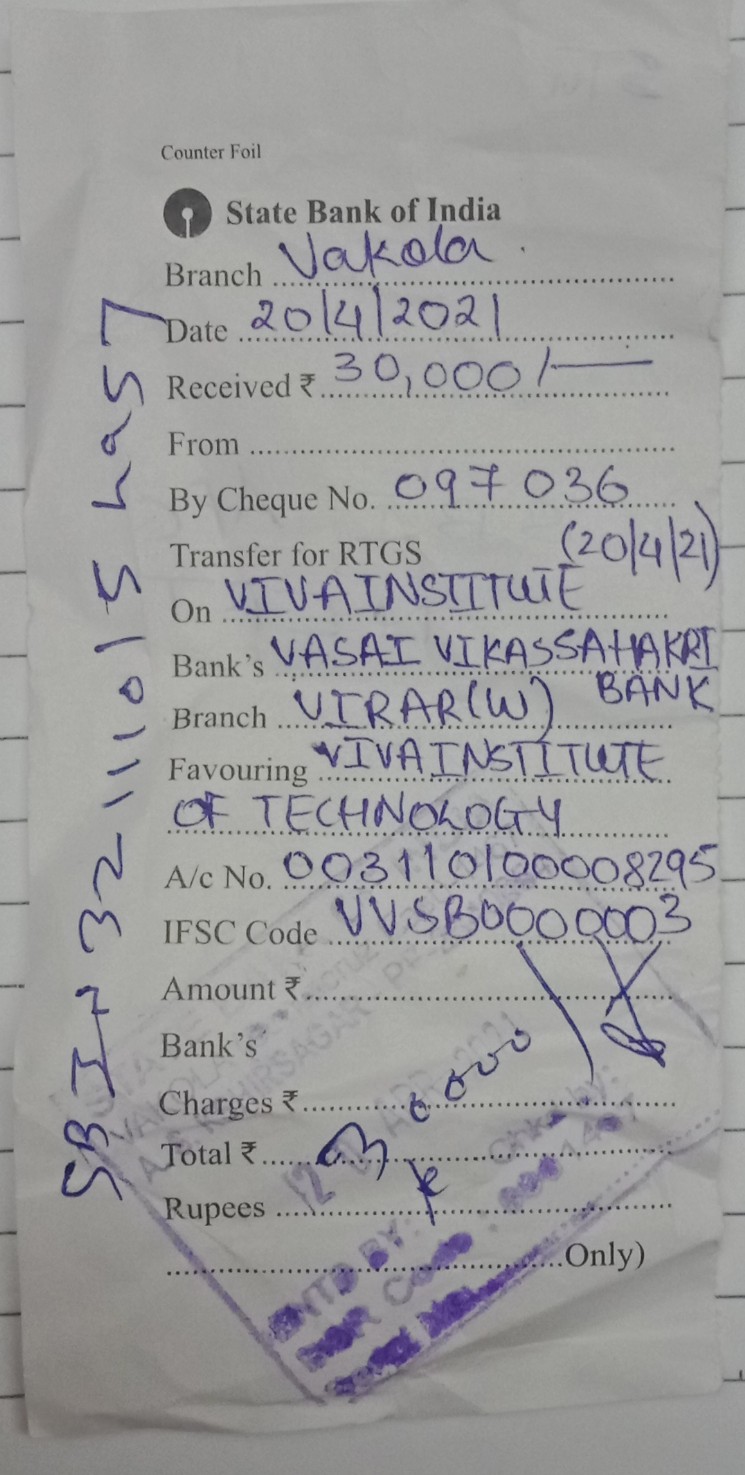 Counter Foil
State Bank of India
Branch Vakola
Date 20/4/2021
Received ₹ 30,000/-
From
By Cheque No. 097036
Transfer for RTGS (20/4/21)
On VIVA INSTITUTE
Bank's VASAI VIKAS SAHAKRI BANK
Branch VIRAR(W)
Favouring VIVA INSTITUTE
OF TECHNOLOGY
A/c No. 003110100008295
IFSC Code VVSB0000003
Amount ₹
Bank's
Charges ₹ 30000
Total ₹
Rupees
Only)